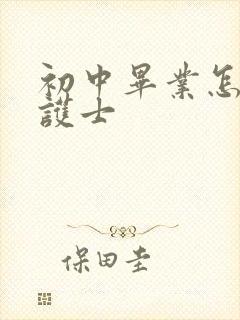 初中畢業怎
護士
保田圭